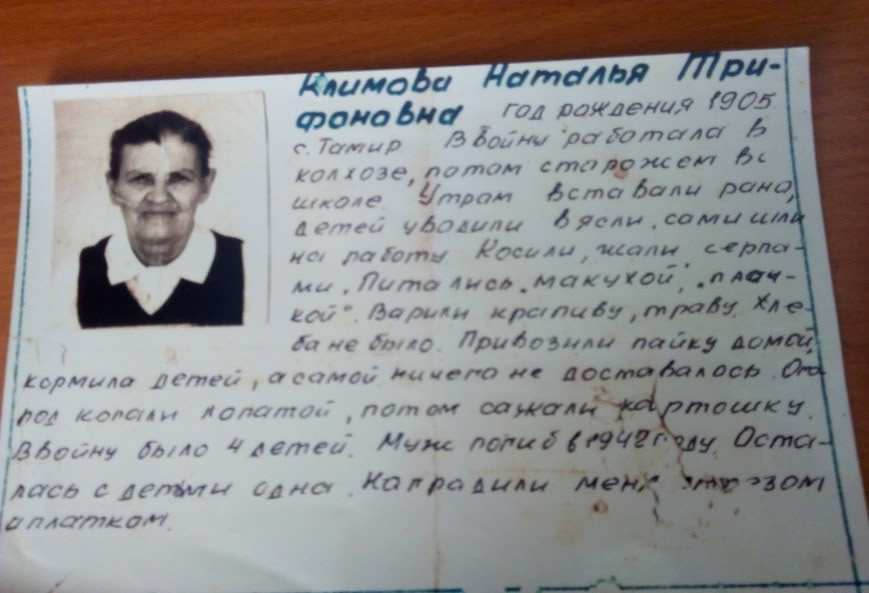 Климова Наталья Три-
фоновна год рождения 1905
с. Тамир В войну работала в
колхозе, потом сторожем в
школе. Утрам вставали рано,
детей уводили в ясли, сами шли
на работу Косили, жали серпа-
ми. Питались „макухой", „плач-
кой". Варили крапиву, траву. Хле-
ба не было. Привозили пайку домой,
кормила детей, а самой ничего не доставалось. Ого
род копали лопатой, потом сажали картошку.
В войну было 4 детей. Муж погиб в 1942 году. Оста-
лась с детьми одна. Наградили меня
и платком.